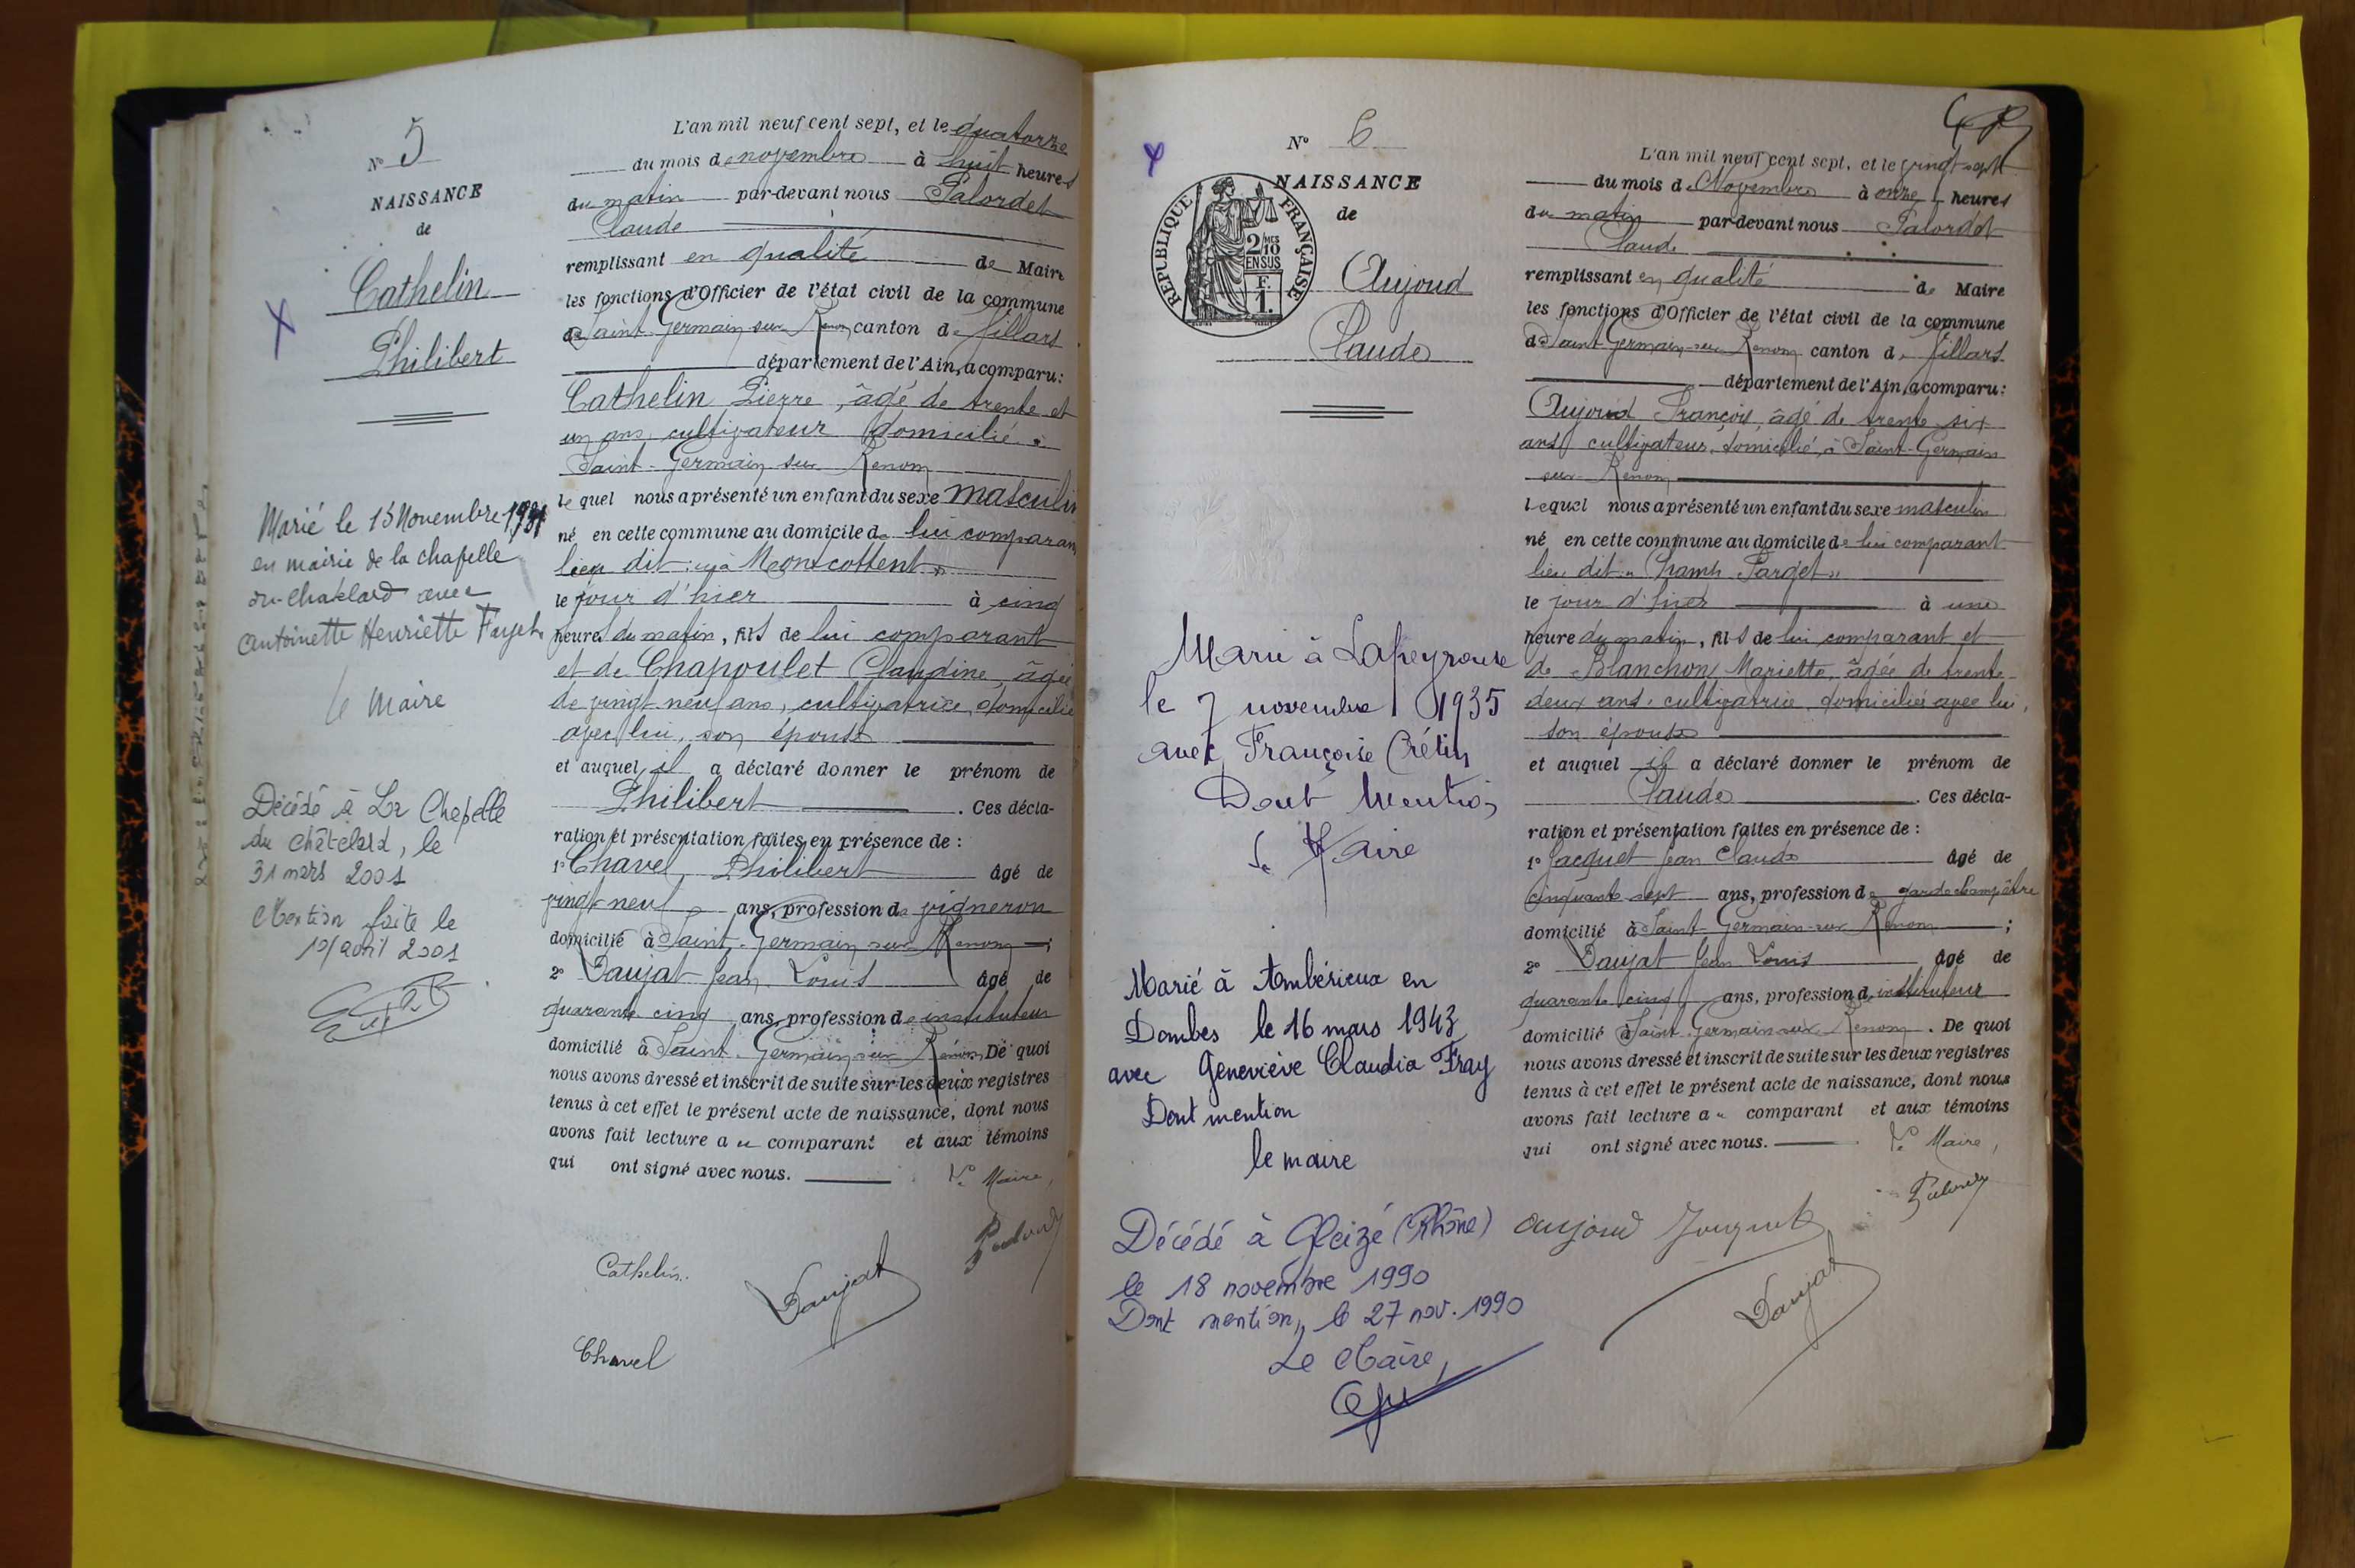 N° 5
NAISSANCE
de
Cathelin
Philibert
Marié le 13 Novembre 1931
en mairie de la chapelle
du chatelard avec
Antoinette Henriette
le Maire
Décédé à La Chapelle
du châtelard, le
31 mars 2001
Mention faite le
avril 2001
L'an mil neuf cent sept, et le quatorze
du mois de novembre à huit heures
du matin par-devant nous Palordet
Claude
remplissant en qualité de Maire
les fonctions d'Officier de l'état civil de la commune
de Saint Germain sur Renom canton de Villars
département de l'Ain, a comparu:
Cathelin Pierre, âgé de trente et
un ans, cultivateur domicilié à
Saint-Germain sur Renom
lequel nous a présenté un enfant du sexe masculin
né en cette commune au domicile de lui comparant
lieu dit: "à Montcottent"
le jour d'hier à cinq
heures du matin, fils de lui comparant
et de Chapoulet Claudine, âgée
de vingt-neuf ans, cultivatrice, domiciliée
avec lui, son épouse
et auquel il a déclaré donner le prénom de
Philibert . Ces décla-
ration et présentation faites en présence de :
1° Chavel Philibert âgé de
vingt-neuf ans, profession de vigneron
domicilié à Saint-Germain sur Renom ;
2° Daujat Jean Louis âgé de
quarante cinq ans, profession de instituteur
domicilié à Saint-Germain sur Renom De quoi
nous avons dressé et inscrit de suite sur les deux registres
tenus à cet effet le présent acte de naissance, dont nous
avons fait lecture au comparant et aux témoins
qui ont signé avec nous. Le Maire,
Cathelin
Daujat
Chavel
N° 6
NAISSANCE
de
RÉPUBLIQUE FRANÇAISE
2/10 MES
EN SUS
F.
1.
Aujoud
Claude
Marié à Lapeyrouse
le 7 novembre 1935
avec Françoise Crétin
Dont Mention
Le Maire
Marié à Ambérieux en
Dombes le 16 mars 1943
avec Geneviève Claudia Fray
Dont mention
le maire
Décédé à Gleizé (Rhône)
le 18 novembre 1990
Dont mention, le 27 nov. 1990
Le Maire,
L'an mil neuf cent sept, et le vingt-sept
du mois de Novembre à onze heures
du matin par-devant nous Palordet
Claude
remplissant en qualité de Maire
les fonctions d'Officier de l'état civil de la commune
de Saint Germain sur Renom canton de Villars
département de l'Ain, a comparu:
Aujoud François, âgé de trente six
ans cultivateur, domicilié, à Saint-Germain
sur-Renom
lequel nous a présenté un enfant du sexe masculin
né en cette commune au domicile de lui comparant
lieu dit "Champ
le jour d'hier à une
heure du matin, fils de lui comparant et
de Blanchon Mariette, âgée de trente-
deux ans, cultivatrice, domiciliée avec lui,
son épouse
et auquel il a déclaré donner le prénom de
Claude . Ces décla-
ration et présentation faites en présence de :
1° Jacquet Jean Claude âgé de
cinquante sept ans, profession de garde champêtre
domicilié à Saint-Germain-sur Renom ;
2° Daujat Jean Louis âgé de
quarante cinq ans, profession d'instituteur
domicilié à Saint Germain sur Renom . De quoi
nous avons dressé et inscrit de suite sur les deux registres
tenus à cet effet le présent acte de naissance, dont nous
avons fait lecture au comparant et aux témoins
qui ont signé avec nous. Le Maire,
Aujoud Jacquet
Daujat